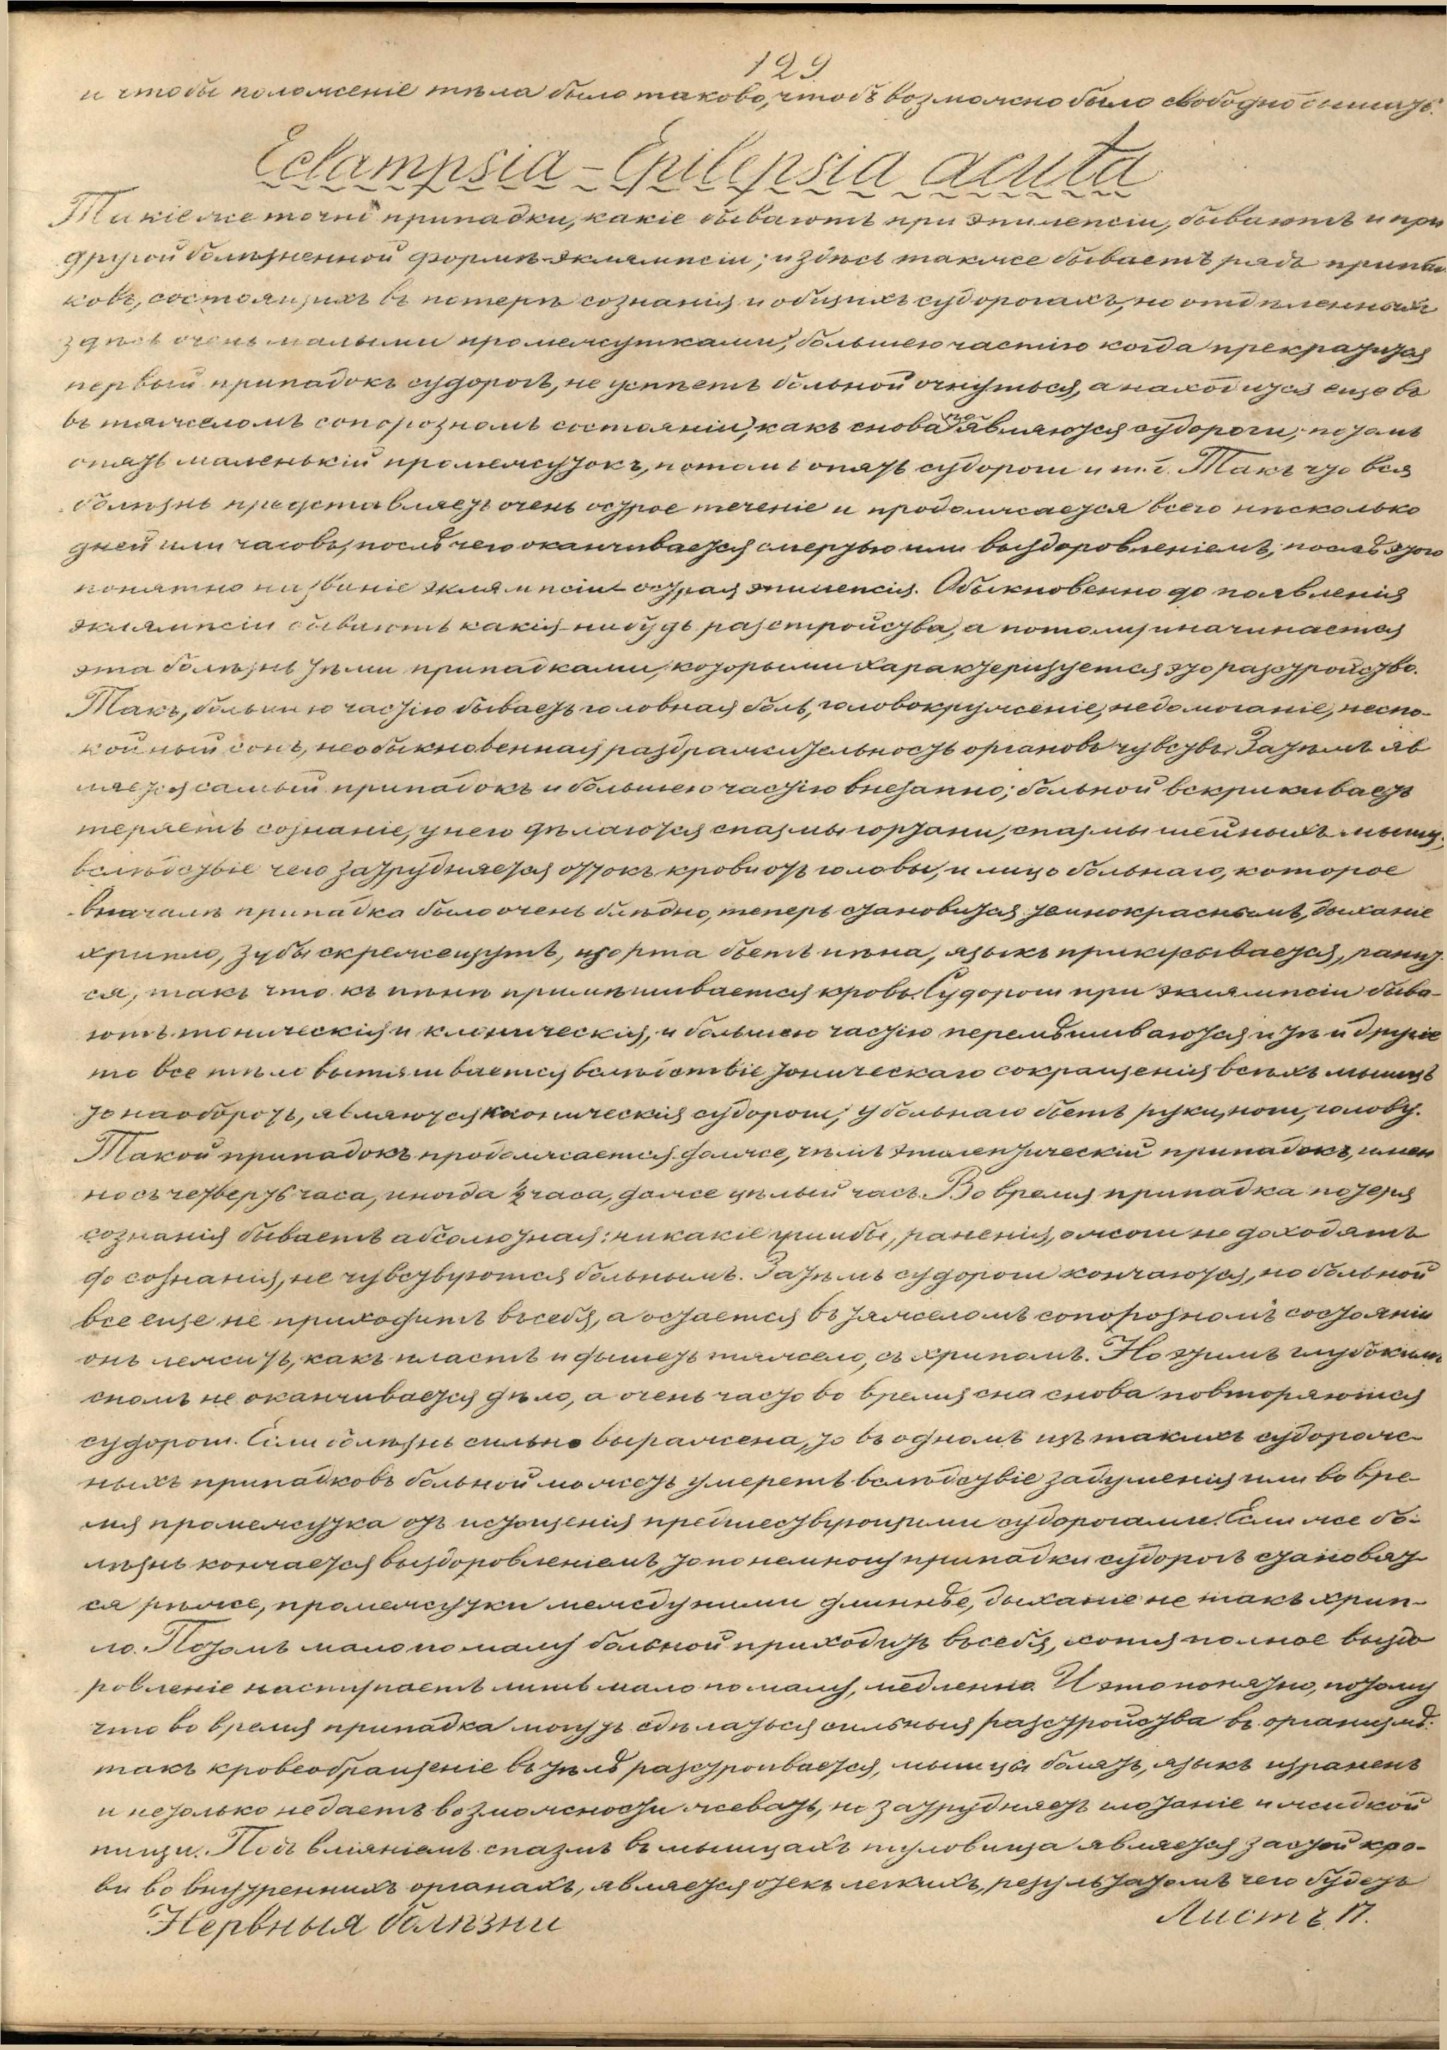 129
и чтобы положеніе тѣла было таково, чтобъ возможно было свободно дышать.
Eclampsia – Epilepsia acuta
Такіе же точно припадки, какіе бываютъ при эпилепсіи, бываютъ и при
другой болѣзненной формѣ – эклямпсіи; и здѣсь также бываетъ рядъ припад
ковъ, состоящихъ въ потерѣ сознанія и общихъ судорогахъ, но отдѣленныхъ
здѣсь очень малыми промежутками; большею частію когда прекратится
первый припадокъ судорогъ, не успѣетъ больной очнуться, а находится еще въ
въ тяжеломъ сопорозномъ состояніи, какъ снова появляются судороги, потомъ
опять маленькій промежутокъ, потомъ опять судороги и т.д. Такъ что вся
болѣзнь представляетъ очень острое теченіе и продолжается всего нѣсколько
дней или часовъ, послѣ чего оканчивается смертью или выздоровленіемъ; послѣ этого
понятно названіе эклямпсіи острая эпилепсія. Обыкновенно до появленія
эклямпсіи бываютъ какія-нибудь разстройства, а потому и начинается
эта болѣзнь тѣми припадками, которыми характеризуется это разстройство.
Такъ, большею частію бываетъ головная боль, головокруженіе, недомоганіе, неспо-
койный сонъ, необыкновенная раздражительность органовъ чувствъ. Затѣмъ яв
ляется самый припадокъ и большею частію внезапно; больной вскрикиваетъ
теряетъ сознаніе, у него дѣлаются спазмы гортани, спазмы шейныхъ мышц.,
вслѣдствіе чего затрудняется оттокъ крови отъ головы, и лицо больнаго, которое
вначалѣ припадка было очень блѣдно, теперь становится темнокраснымъ, дыханіе
хрипло, зубы скрежещутъ, изо рта бьетъ пѣна, языкъ прикусывается, ранит.
ся, такъ что къ пѣнѣ примѣшивается кровь. Судороги при эклямпсіи быва-
ютъ тоническія и клоническія, и большею частію перемѣшиваются и тѣ и другіе
то все тѣло вытягивается вслѣдствіе тоническаго сокращенія всѣхъ мышцъ
то наоборотъ, являются клоническія судороги; у больнаго бьетъ руки, ноги, голову.
Такой припадокъ продолжается дольше, чѣмъ эпилептическій припадокъ, имен
но съ четверть часа, иногда ½ часа, даже цѣлый часъ. Во время припадка потеря
сознанія бываетъ абсолютная: никакіе ушибы, раненія, ожоги не доходятъ
до сознанія, не чувствуются больнымъ. Затѣмъ судороги кончаются, но больной
все еще не приходитъ въ себя, а остается въ тяжеломъ сопорозномъ состояніи
онъ лежитъ, какъ пластъ и дышетъ тяжело, съ хрипомъ. Но этимъ глубокимъ
сномъ не оканчивается дѣло, а очень часто во время сна снова повторяются
судороги. Если болѣзнь сильно выражена, то въ одномъ изъ такихъ судорож-
ныхъ припадковъ больной можетъ умереть вслѣдствіе задушенія или во вре-
мя промежутка отъ истощенія предшествующими судорогами. Если же бо-
лѣзнь кончается выздоровленіемъ, то по немногу припадки судорогъ становят-
ся рѣже, промежутки между ними длиннѣе, дыханіе не такъ хрип-
ло. Потомъ мало по малу больной приходитъ въ себя, хотя полное выздо
ровленіе наступаетъ лишь мало по малу, медленно. И это понятно, потому
что во время припадка могутъ сдѣлаться сильныя разстройства въ организмѣ:
такъ кровеобращеніе въ тѣлѣ разстроивается, мышцы болятъ, языкъ израненъ
и не только не даетъ возможности жевать, но затрудняетъ глотаніе и жидкой
пищи. Подъ вліяніемъ спазмъ въ мышцахъ туловища является застой кро-
ви во внутреннихъ органахъ, является отекъ легкихъ, результатомъ чего будетъ
Нервныя болѣзни
Листъ 17.